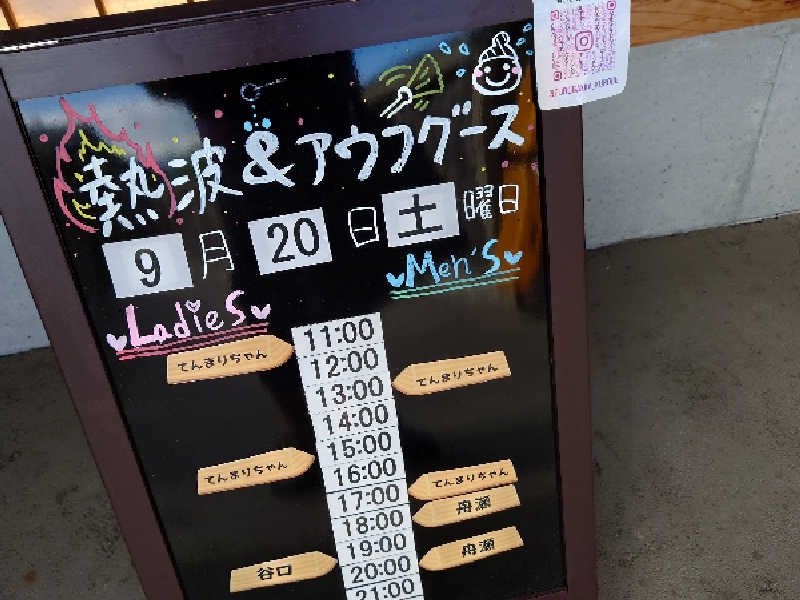 熱波&アウフグース
9月20日土曜日
Men's
Ladies
11:00
てんまりちゃん
12:00
てんまりちゃん
13:00
14:00
15:00
てんまりちゃん
16:00
てんまりちゃん
17:00
舟瀬
18:00
19:00
舟瀬
谷口
20:00
21:00